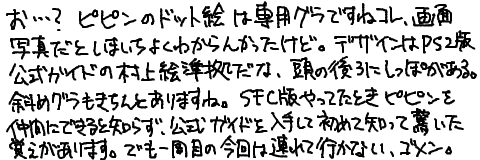 お…？ ピピンのドット絵は専用グラですねコレ、画面
写真だとしはいちよくわからんかったけど。デザインはPS2版
公式ガイドの村上絵準拠だな、頭の後ろにしっぽがある。
斜めグラもきちんとありますね。SFC版やってたときピピンを
仲間にできると知らず、公式ガイドを入手して初めて知って驚いた
覚えがあります。でも一周目の今回は連れて行かない、ゴメン。